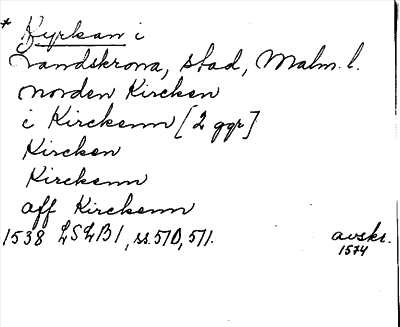 * Kyrkan i
Landskrona, stad, Malm. l.
norden Kircken
i Kirckenn [2 ggr]
Kircken
Kirckenn
aff Kirckenn
1538 LSLB1, ss. 510, 511. avskr.
1574